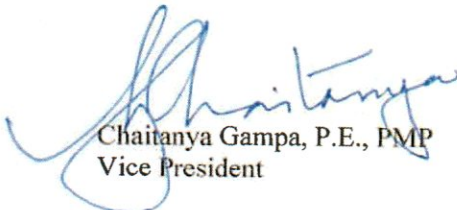 Chaitanya
Chaitanya Gampa, P.E., PMP
Vice President